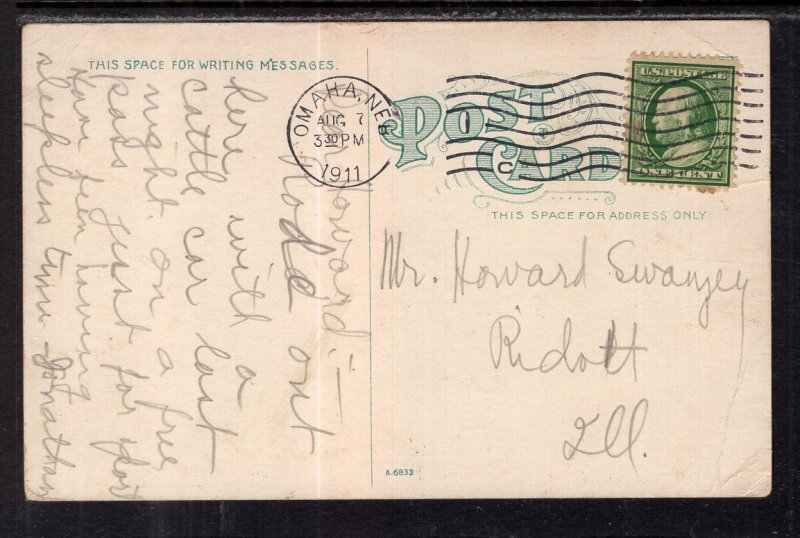 THIS SPACE FOR WRITING MESSAGES.
OMAHA, NEB
AUG 7
3 30 PM
1911
POST CARD
U.S. POSTAGE
ONE CENT
THIS SPACE FOR ADDRESS ONLY
Mr. Howard Swanzey
Ridott
Ill.
Howard:—
Rode out
here with a
cattle car last
night on a free
pass just for sport
Have been having
sleepless time Jonathan
A-6833